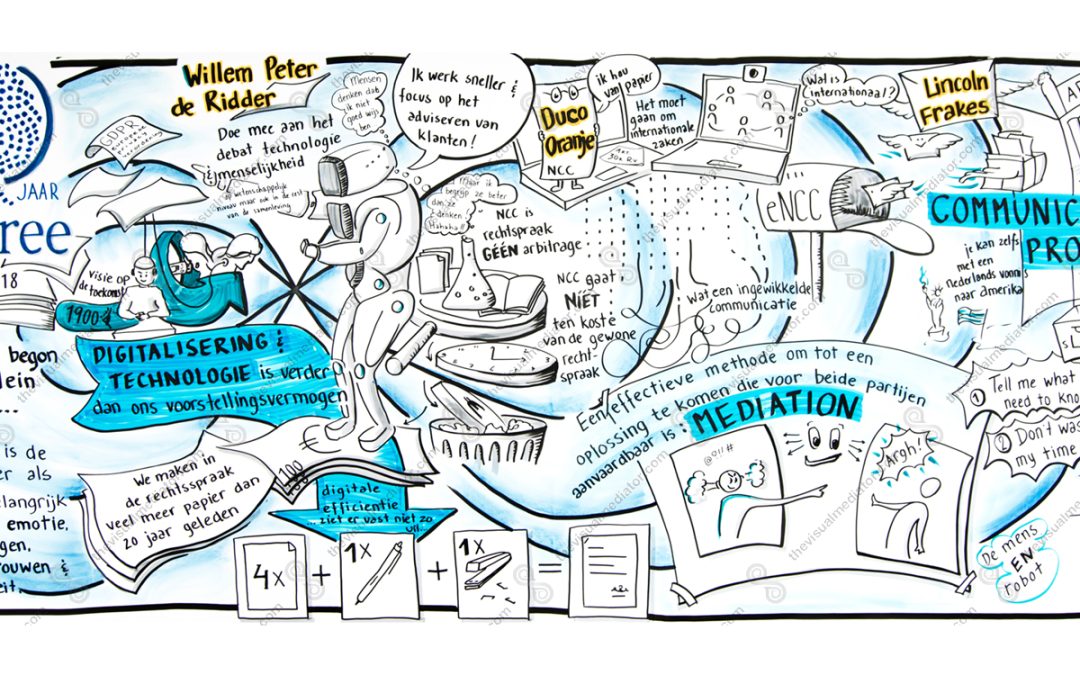 JAAR
ree
18
begon
lein
...
is de
er als
elangrijk
emotie,
gen,
rouwen &
eit.
Willem Peter
de Ridder
GDPR
visie op
de toekomst
1900
Doe mee aan het
debat technologie
& menselijkheid
op wetenschappelijk
niveau maar ook in de rest
van de samenleving
Mensen
denken dat
ik niet
goed wijs
ben
Ik werk sneller &
focus op het
adviseren van
klanten!
Maar ik
begrijp ze beter
dan ze
denken
Hahaha!!
DIGITALISERING &
TECHNOLOGIE is verder
dan ons voorstellingsvermogen
We maken in
de rechtsspraak
veel meer papier dan
20 jaar geleden
100
digitale
efficiëntie
... ziet er vast niet zo
uit...
4x
+
1x
+
1x
=
Duco
Oranje
NCC
ik hou
van papier
Het moet
gaan om
internationale
zaken
NCC is
rechtspraak
GÉÉN arbitrage
NCC gaat
NIET
ten koste
van de gewone
recht-
spraak
Wat is
internationaal?
eNCC
Wat een ingewikkelde
communicatie
Lincoln
Frakes
COMMUNIC
PRO
je kan zelfs
met een
Nederlands vonnis
naar Amerika
Een effectieve methode om tot een
oplossing te komen die voor beide partijen
aanvaardbaar is:
MEDIATION
@o!!#
Argh!
1 Tell me what
need to kno
2 Don't was
my time
De mens
EN
robot
thevisualmediator.com